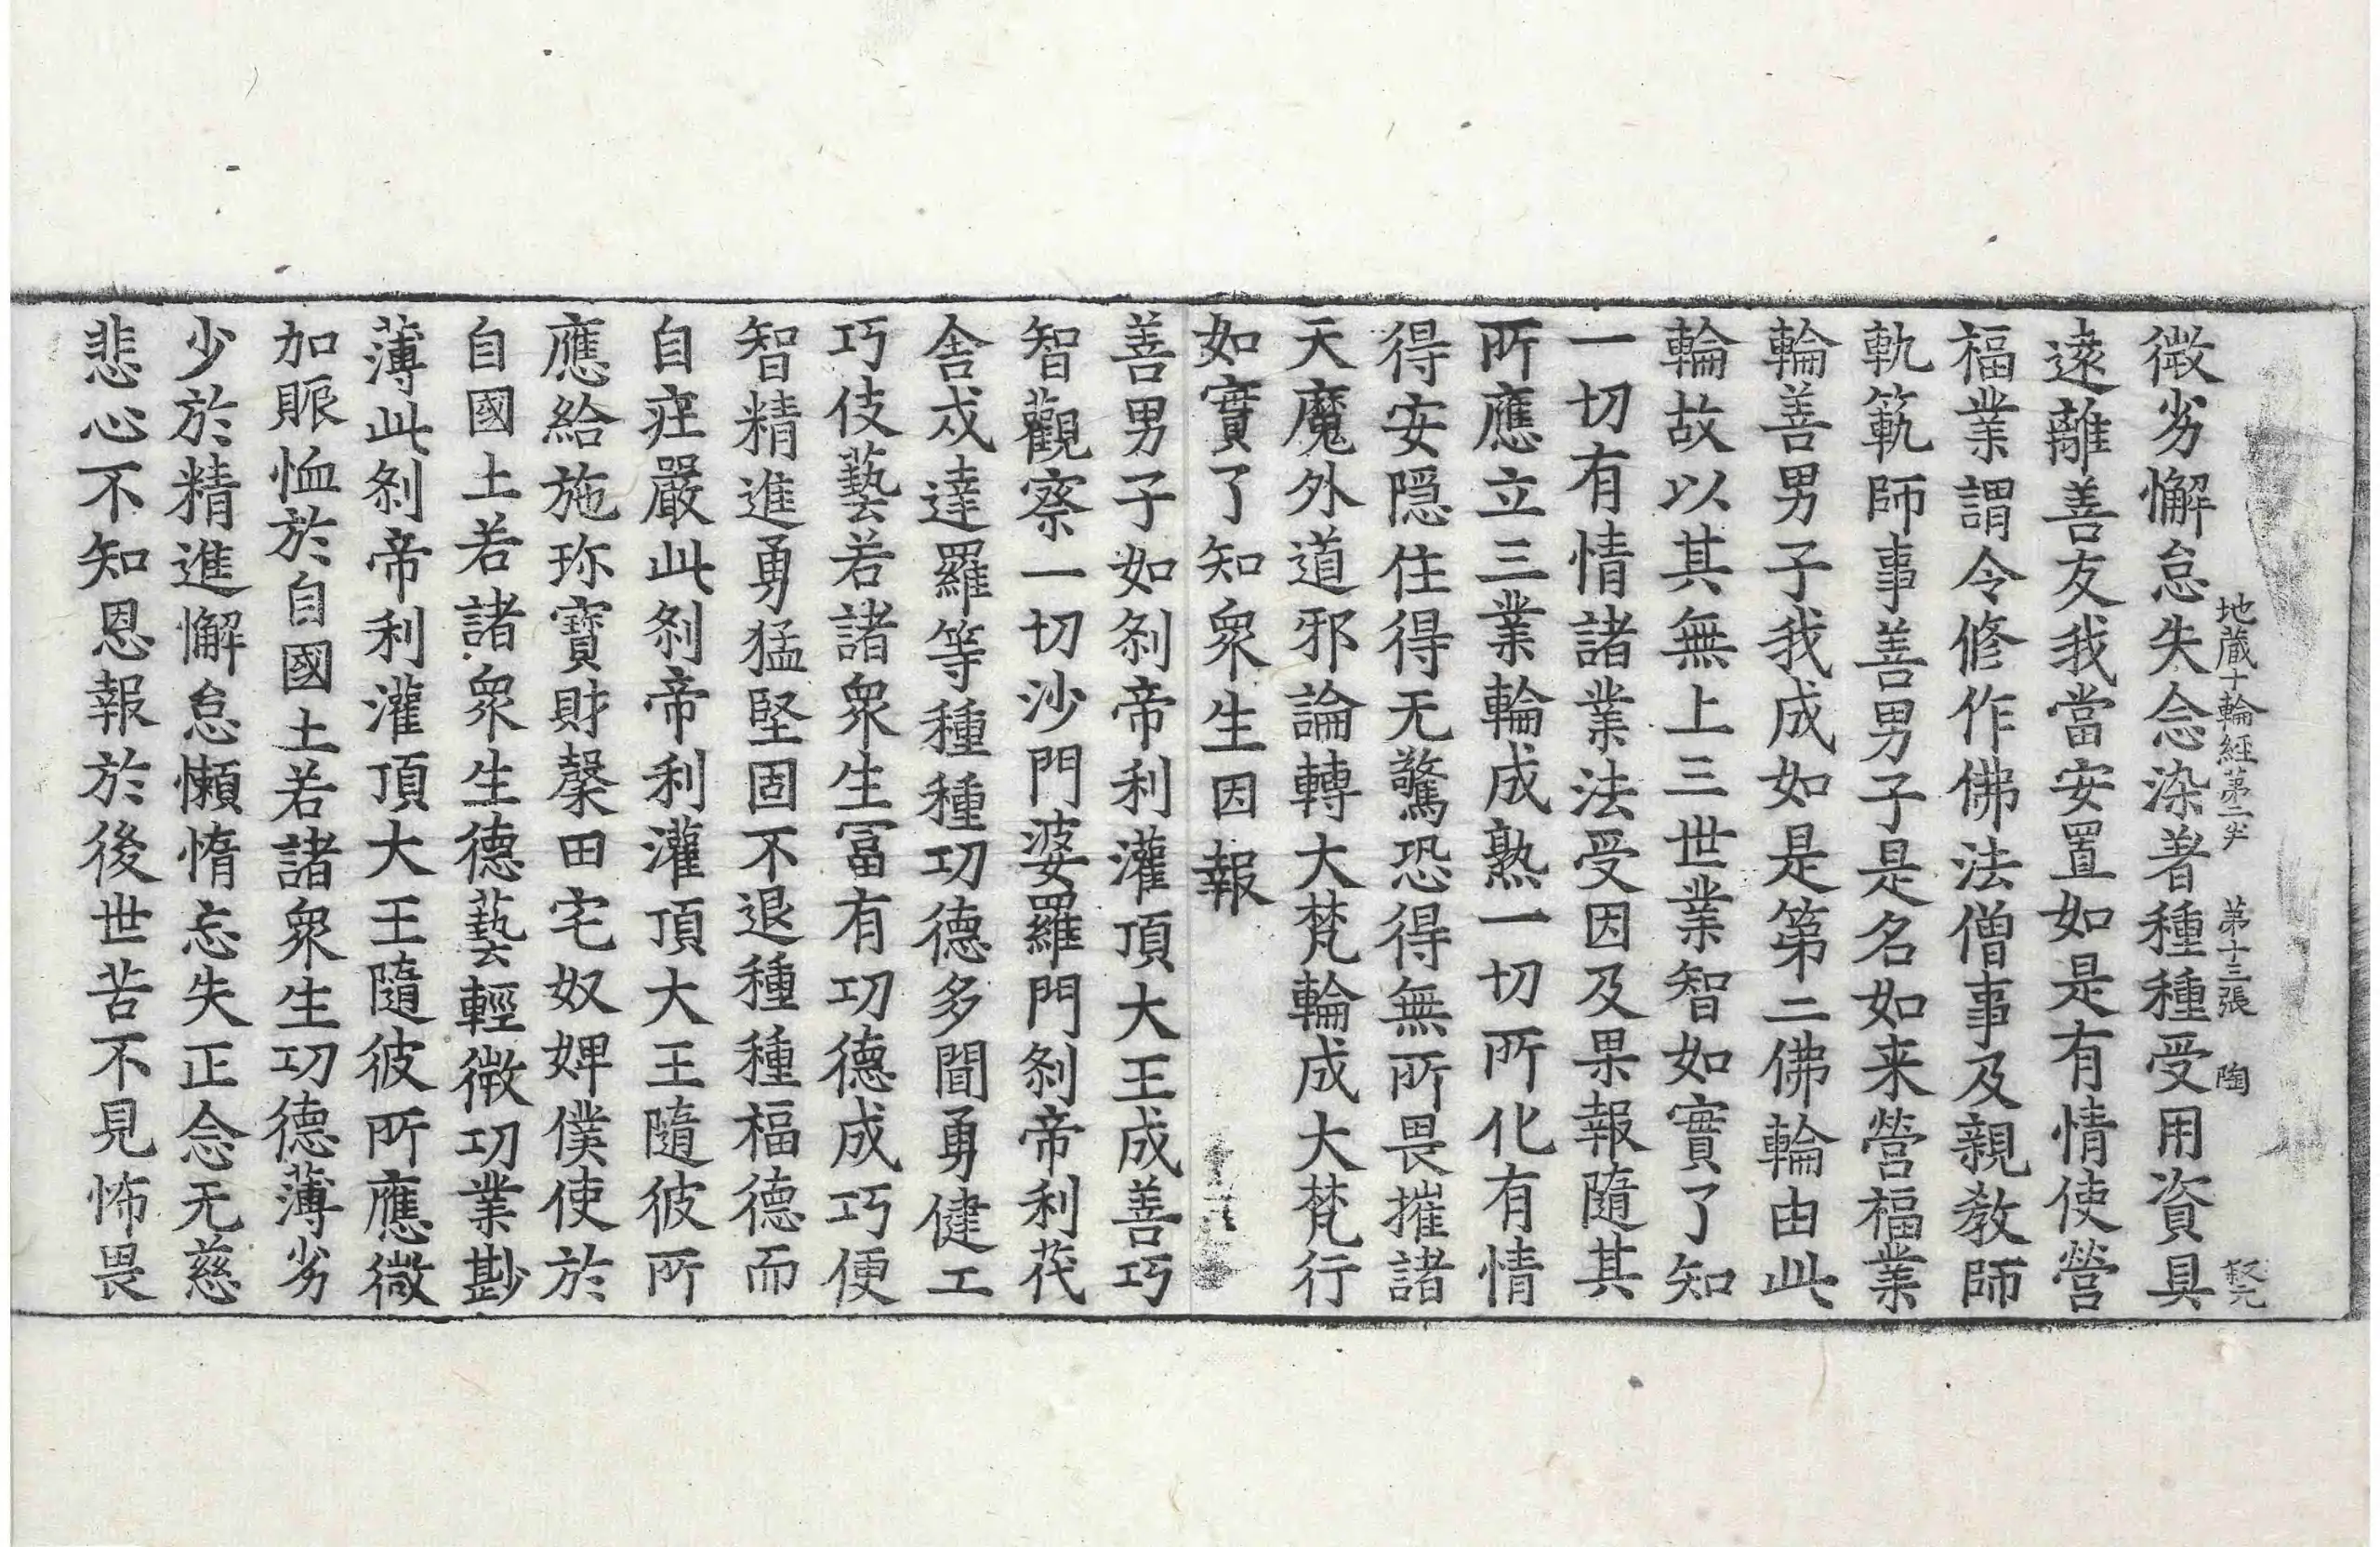 地蔵十輪經第二卷　第十三張　陶　堅元
微劣懈怠失念染著種種受用資具
遠離善友我當安置如是有情使營
福業謂令修作佛法僧事及親教師
軌範師事善男子是名如来營福業
輪善男子我成如是第二佛輪由此
輪故以其無上三世業智如實了知
一切有情諸業法受因及果報隨其
所應立三業輪成熟一切所化有情
得安隠住得无驚恐得無所畏摧諸
天魔外道邪論轉大梵輪成大梵行
如實了知衆生因報
善男子如剎帝利灌頂大王成善巧
智觀察一切沙門婆羅門剎帝利茷
舍戍達羅等種種功德多聞勇健工
巧伎藝若諸衆生冨有功德成巧便
智精進勇猛堅固不退種種福德而
自㽵嚴此剎帝利灌頂大王隨彼所
應給施珎寶財穀田宅奴婢僕使於
自國土若諸衆生德藝輕微功業尠
薄此剎帝利灌頂大王隨彼所應微
加賑恤於自國土若諸衆生功德薄劣
少於精進懈怠懶惰忘失正念无慈
悲心不知恩報於後世苦不見怖畏